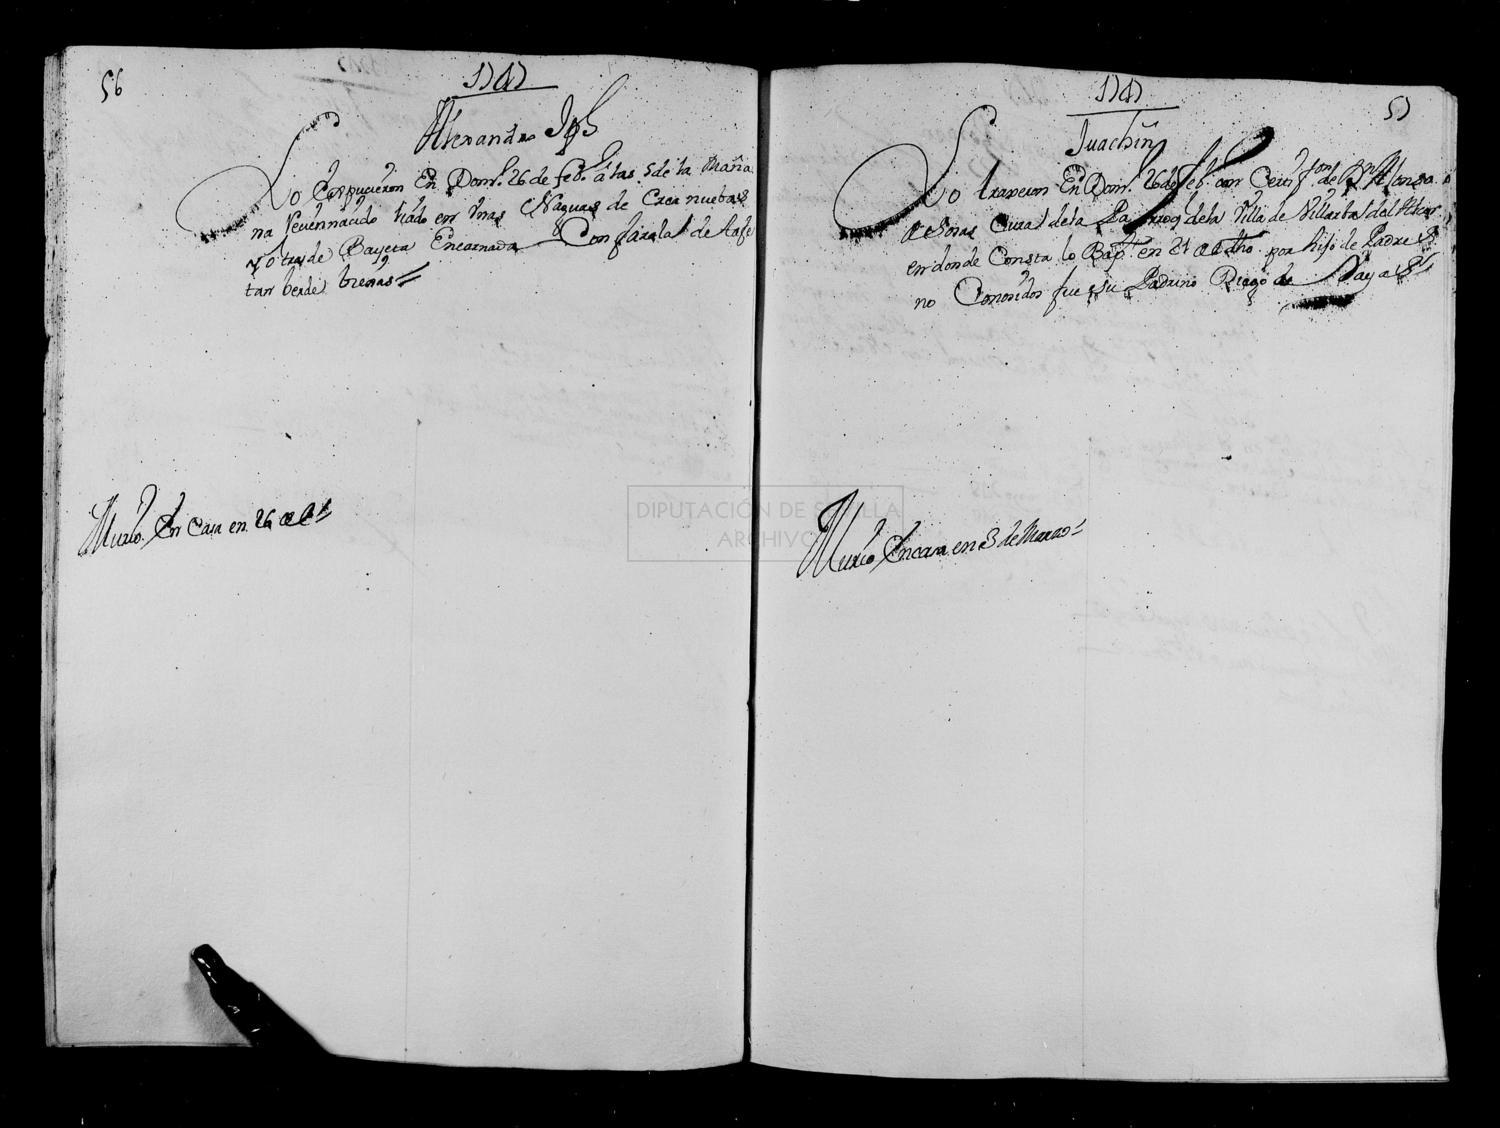 56
1747
Alexandro Jph
Lo Expucieron En Dom.º 26 de feb.º a las 5 de la Maña
na Recennacido liado en unas Naguas de Crea nuebas
y otras de Bayeta Encarnada Con faxa de tafe
tan berde buenas
Murio En Casa en 26
57
1747
Juachin
Lo traxeron En Dom.º 26 de feb.º con Cer de Dn Alonso
Cura de la de la Villa de Villarba del Alcor
en donde Consta lo Bap.º en 21 de dho por hijo de Padres
no Conosidos fue su Padrino Diego de
DIPUTACIÓN DE SEVILLA
ARCHIVO
Murio En casa en 3 de Marzo